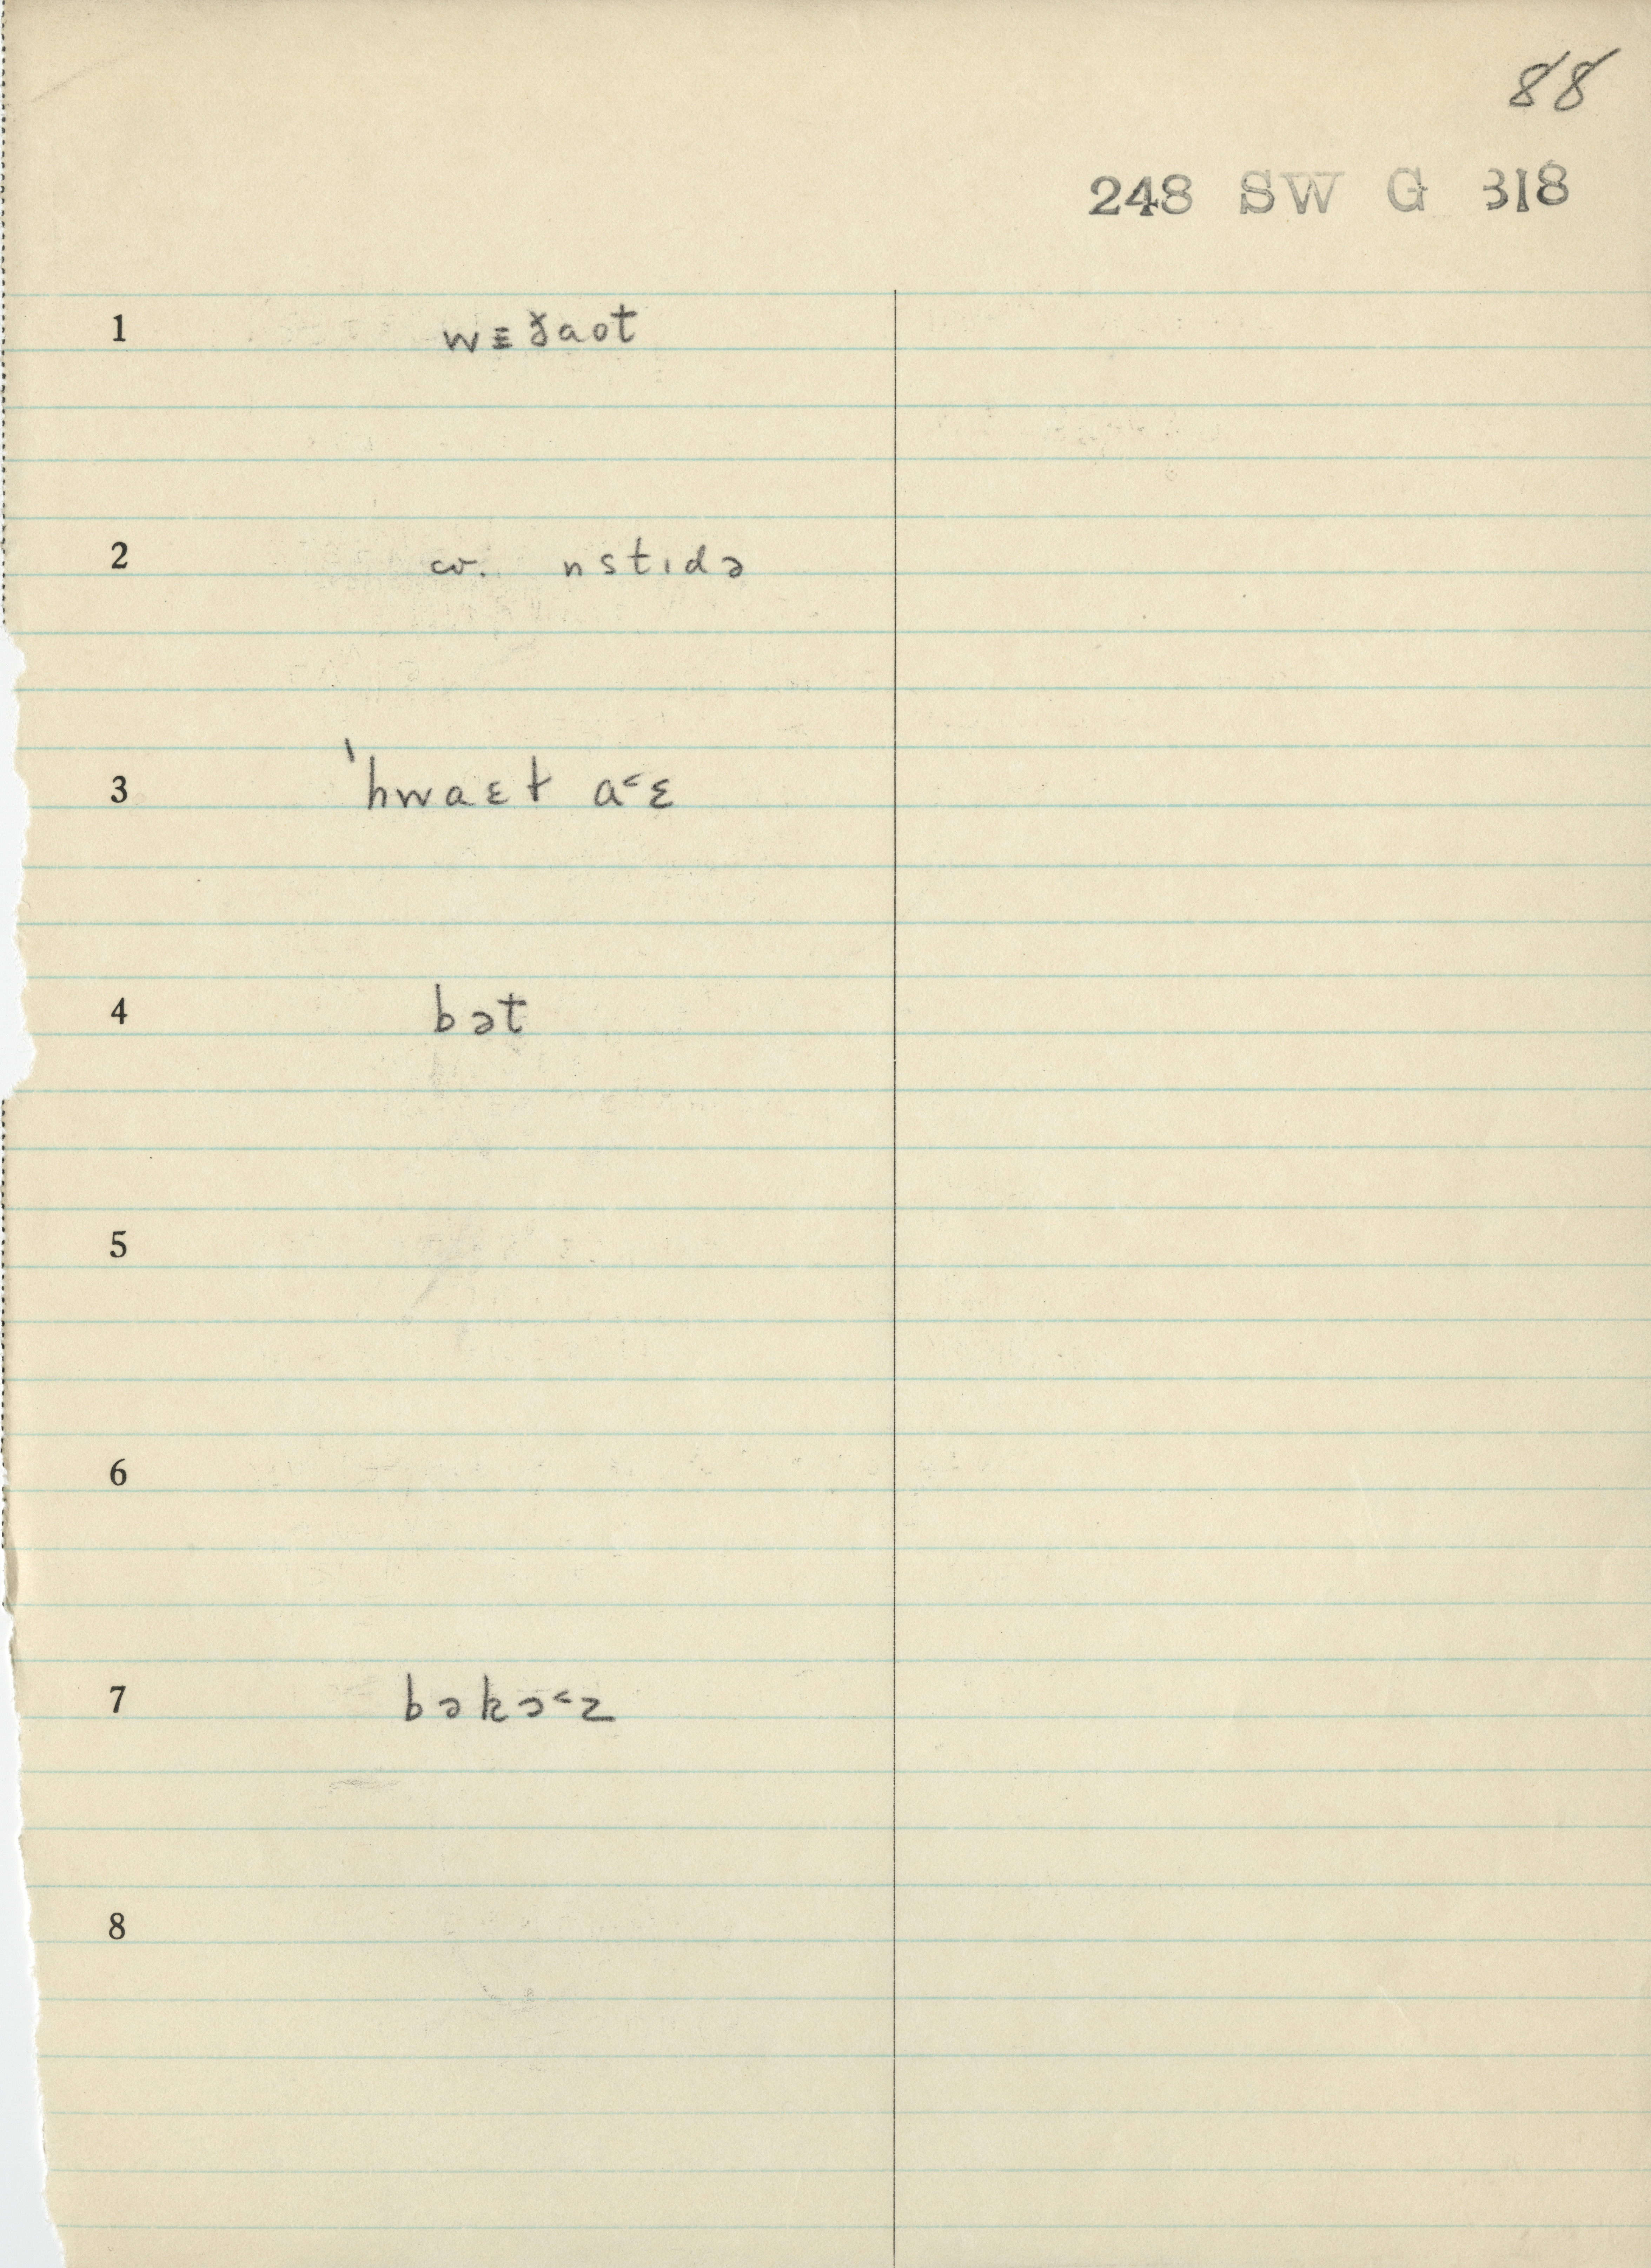 88
248 SW G 318
1 wɛɣ̌aot
2 cv. nstɪdə
3 'hwaɛt a˂ɛ
4 bət
5
6
7 bəkɔ˂z
8